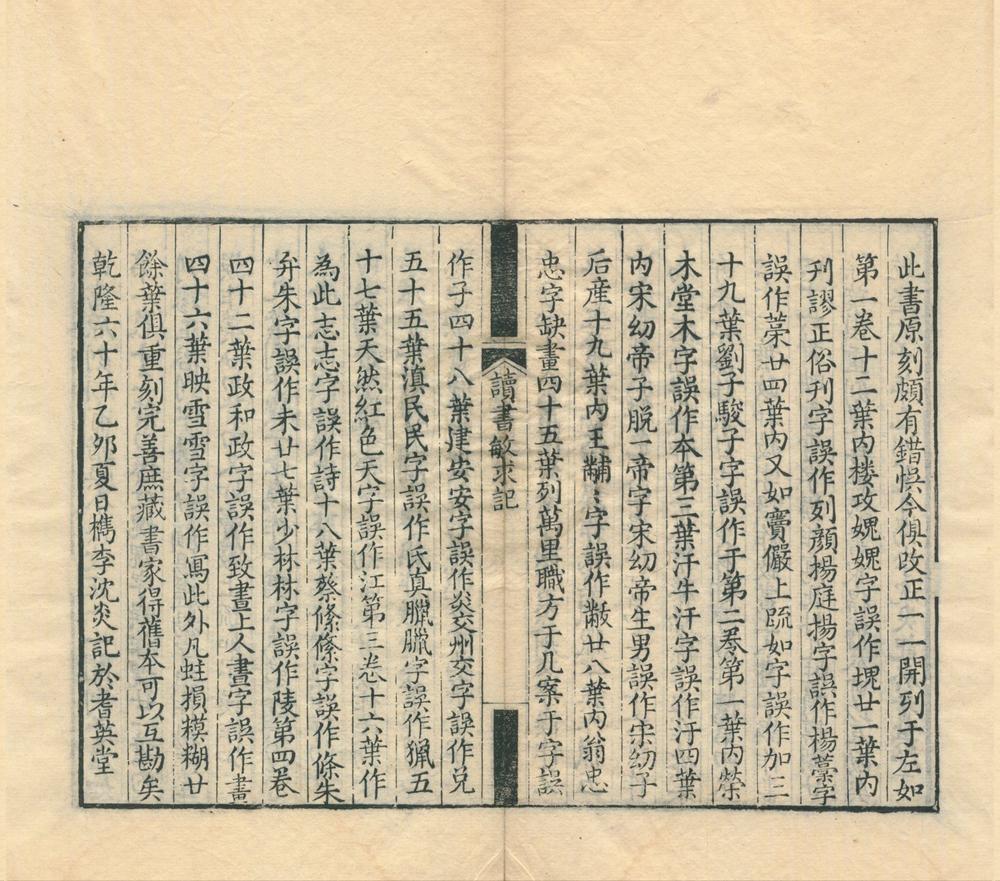 此書原刻頗有錯悞今俱改正一一開列于左如
第一卷十二葉内楼攻媿媿字誤作塊廿一葉内
刊謬正俗刊字誤作列顔揚庭揚字誤作楊藁字
誤作荣廿四葉内又如竇儼上疏如字誤作加三
十九葉劉子駿子字誤作于第二卷第一葉内榮
木堂木字誤作本第三葉汗牛汗字誤作汙四葉
内宋幼帝子脱一帝字宋幼帝生男誤作宋幼子
后産十九葉内王黼〻字誤作黻廿八葉内翁忠
忠字缺畫四十五葉列萬里職方于几案于字誤
讀書敏求記
作子四十八葉建安安字誤作炎交州交字誤作兑
五十五葉滇民民字誤作氏真臘臘字誤作猟五
十七葉天然紅色天字誤作江第三卷十六葉作
為此志志字誤作詩十八葉蔡絛絛字誤作條朱
弁朱字誤作未廿七葉少林林字誤作陵第四卷
四十二葉政和政字誤作致畫上人畫字誤作畵
四十六葉映雪雪字誤作寫此外凡蛀損糢糊廿
餘葉俱重刻完善庶藏書家得舊本可以互勘矣
乾隆六十年乙夘夏日檇李沈炎記於耆英堂